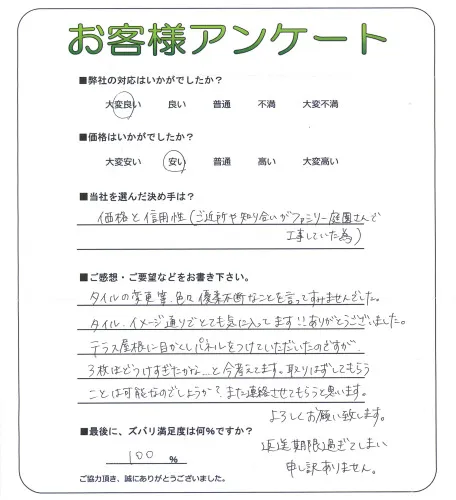 お客様アンケート
■弊社の対応はいかがでしたか？
大変良い 良い 普通 不満 大変不満
■価格はいかがでしたか？
大変安い 安い 普通 高い 大変高い
■当社を選んだ決め手は？
価格と信用性(ご近所や知り合いがファミリー庭園さんで
工事していた為)
■ご感想・ご要望などをお書き下さい。
タイルの変更等、色々優柔不断なことを言ってすみませんでした。
タイル、イメージ通りでとても気に入ってます!!ありがとうございました。
テラス屋根に目かくしパネルをつけていただいたのですが、
3枚はどうけすぎたかな…と今考えてます。取りはずしてもらう
ことは可能なのでしょうか？また連絡させてもらうと思います。
よろしくお願い致します。
■最後に、ズバリ満足度は何%ですか？
100 %
返送期限過ぎてしまい
申し訳ありません。
ご協力頂き、誠にありがとうございました。